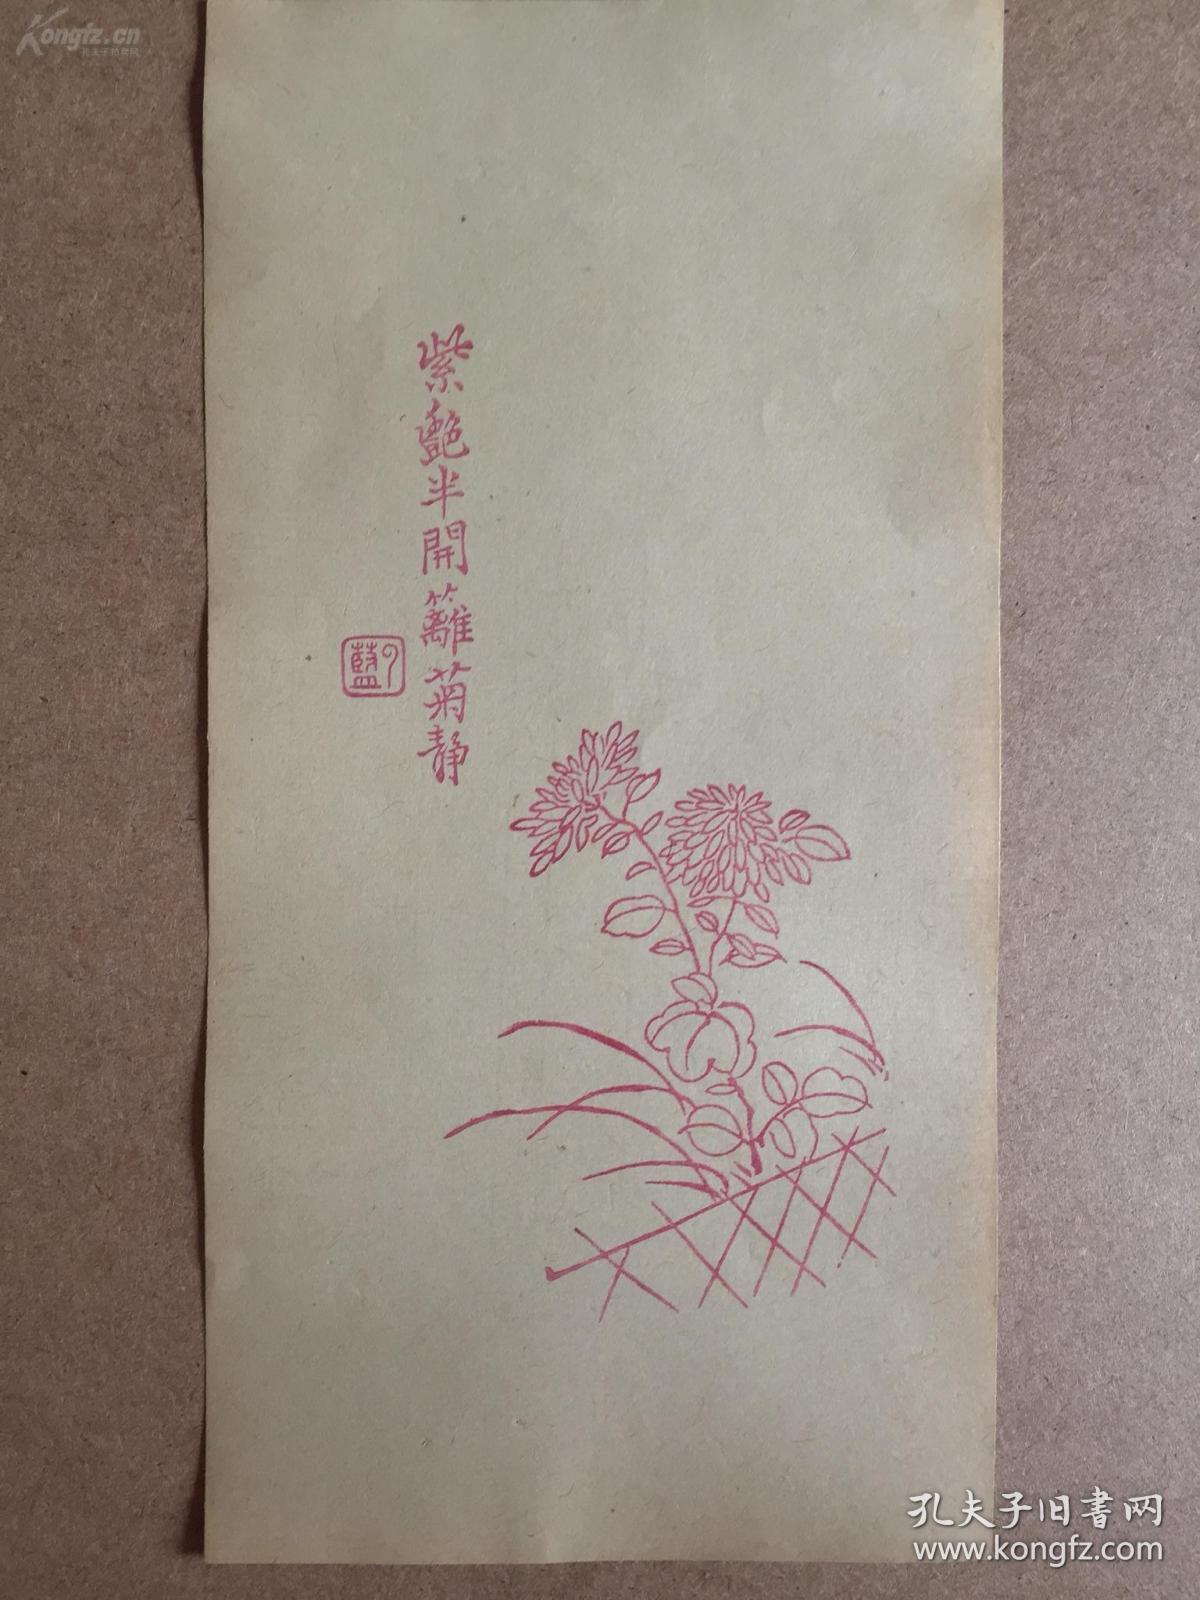 Kongfz.cn
孔夫子拍卖网
紫艷半開籬菊静
孔夫子旧书网
www.kongfz.com